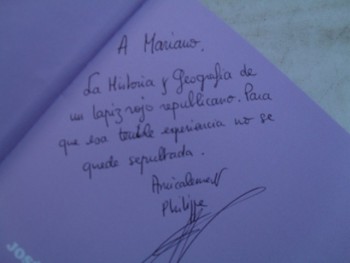 A Mariano.
La Historia y Geografía de
un lapiz rojo republicano. Para
que esa terrible experiencia no se
quede sepultada.
Amicalement
Philippe
JOSÉ